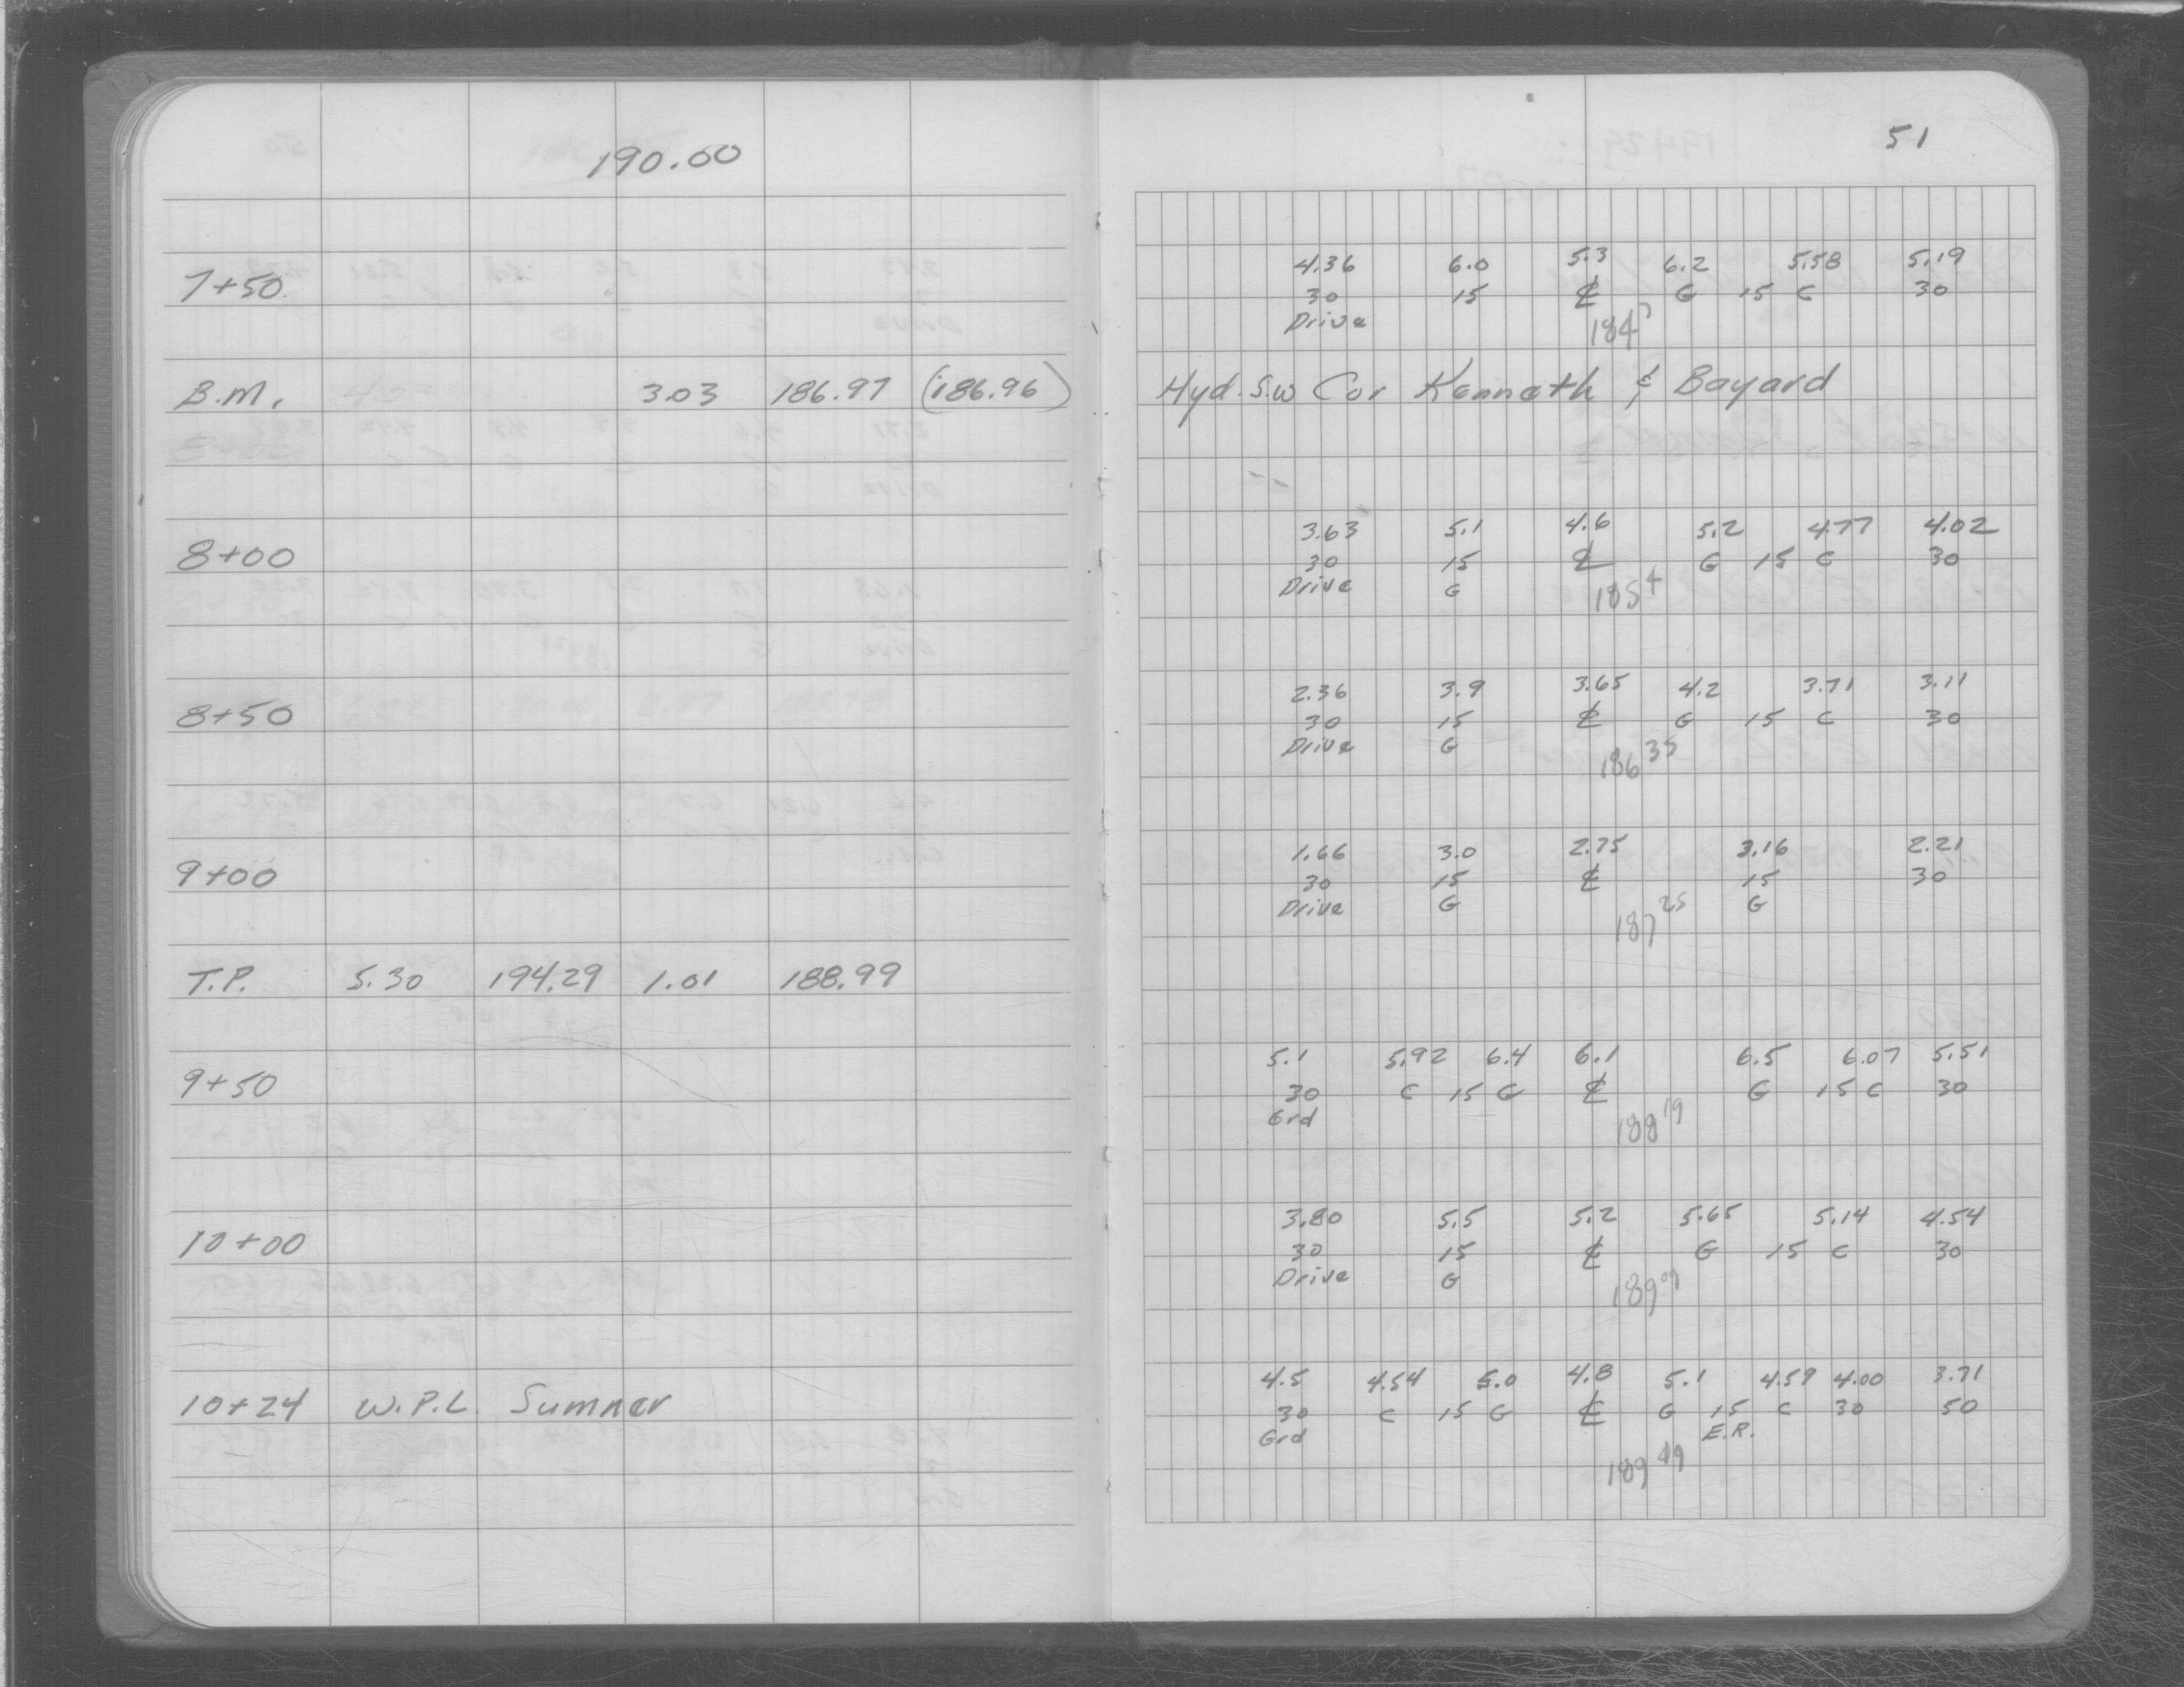 190.00
7+50
B.M. 3.03 186.97 (186.96)
8+00
8+50
9+00
T.P. 5.30 194.29 1.01 188.99
9+50
10+00
10+24 W.P.L. Sumner
51
4.36 6.0 5.3 6.2 5.58 5.19
30 15 ℄ G 15 C 30
Drive 184⁷
Hyd. S.W Cor Kenneth & Bayard
3.63 5.1 4.6 5.2 4.77 4.02
30 15 ℄ G 15 C 30
Drive G 185⁴
2.36 3.9 3.65 4.2 3.71 3.11
30 15 ℄ G 15 C 30
Drive G 186³⁵
1.66 3.0 2.75 3.16 2.21
30 15 ℄ 15 30
Drive G 187²⁵ G
5.1 5.92 6.4 6.1 6.5 6.07 5.51
30 C 15 G ℄ G 15 C 30
Grd 188¹⁹
3.80 5.5 5.2 5.65 5.14 4.54
30 15 ℄ G 15 C 30
Drive G 189⁰⁹
4.5 4.54 5.0 4.8 5.1 4.59 4.00 3.71
30 C 15 G ℄ G 15 C 30 50
Grd E.R.
189⁴⁹